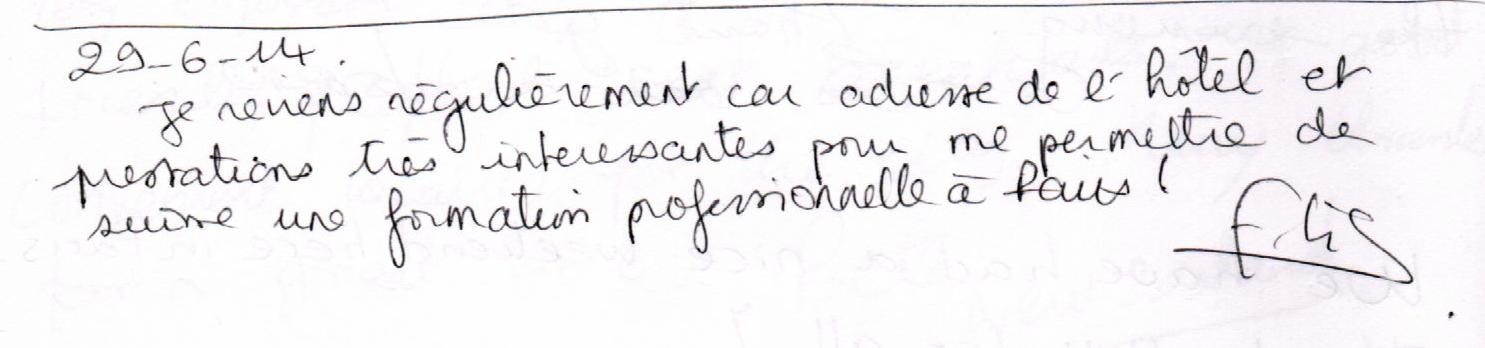 29-6-14.
Je reviens régulièrement car adresse de l'hôtel et
prestations très interessantes pour me permettre de
suivre une formation professionnelle à Paris !